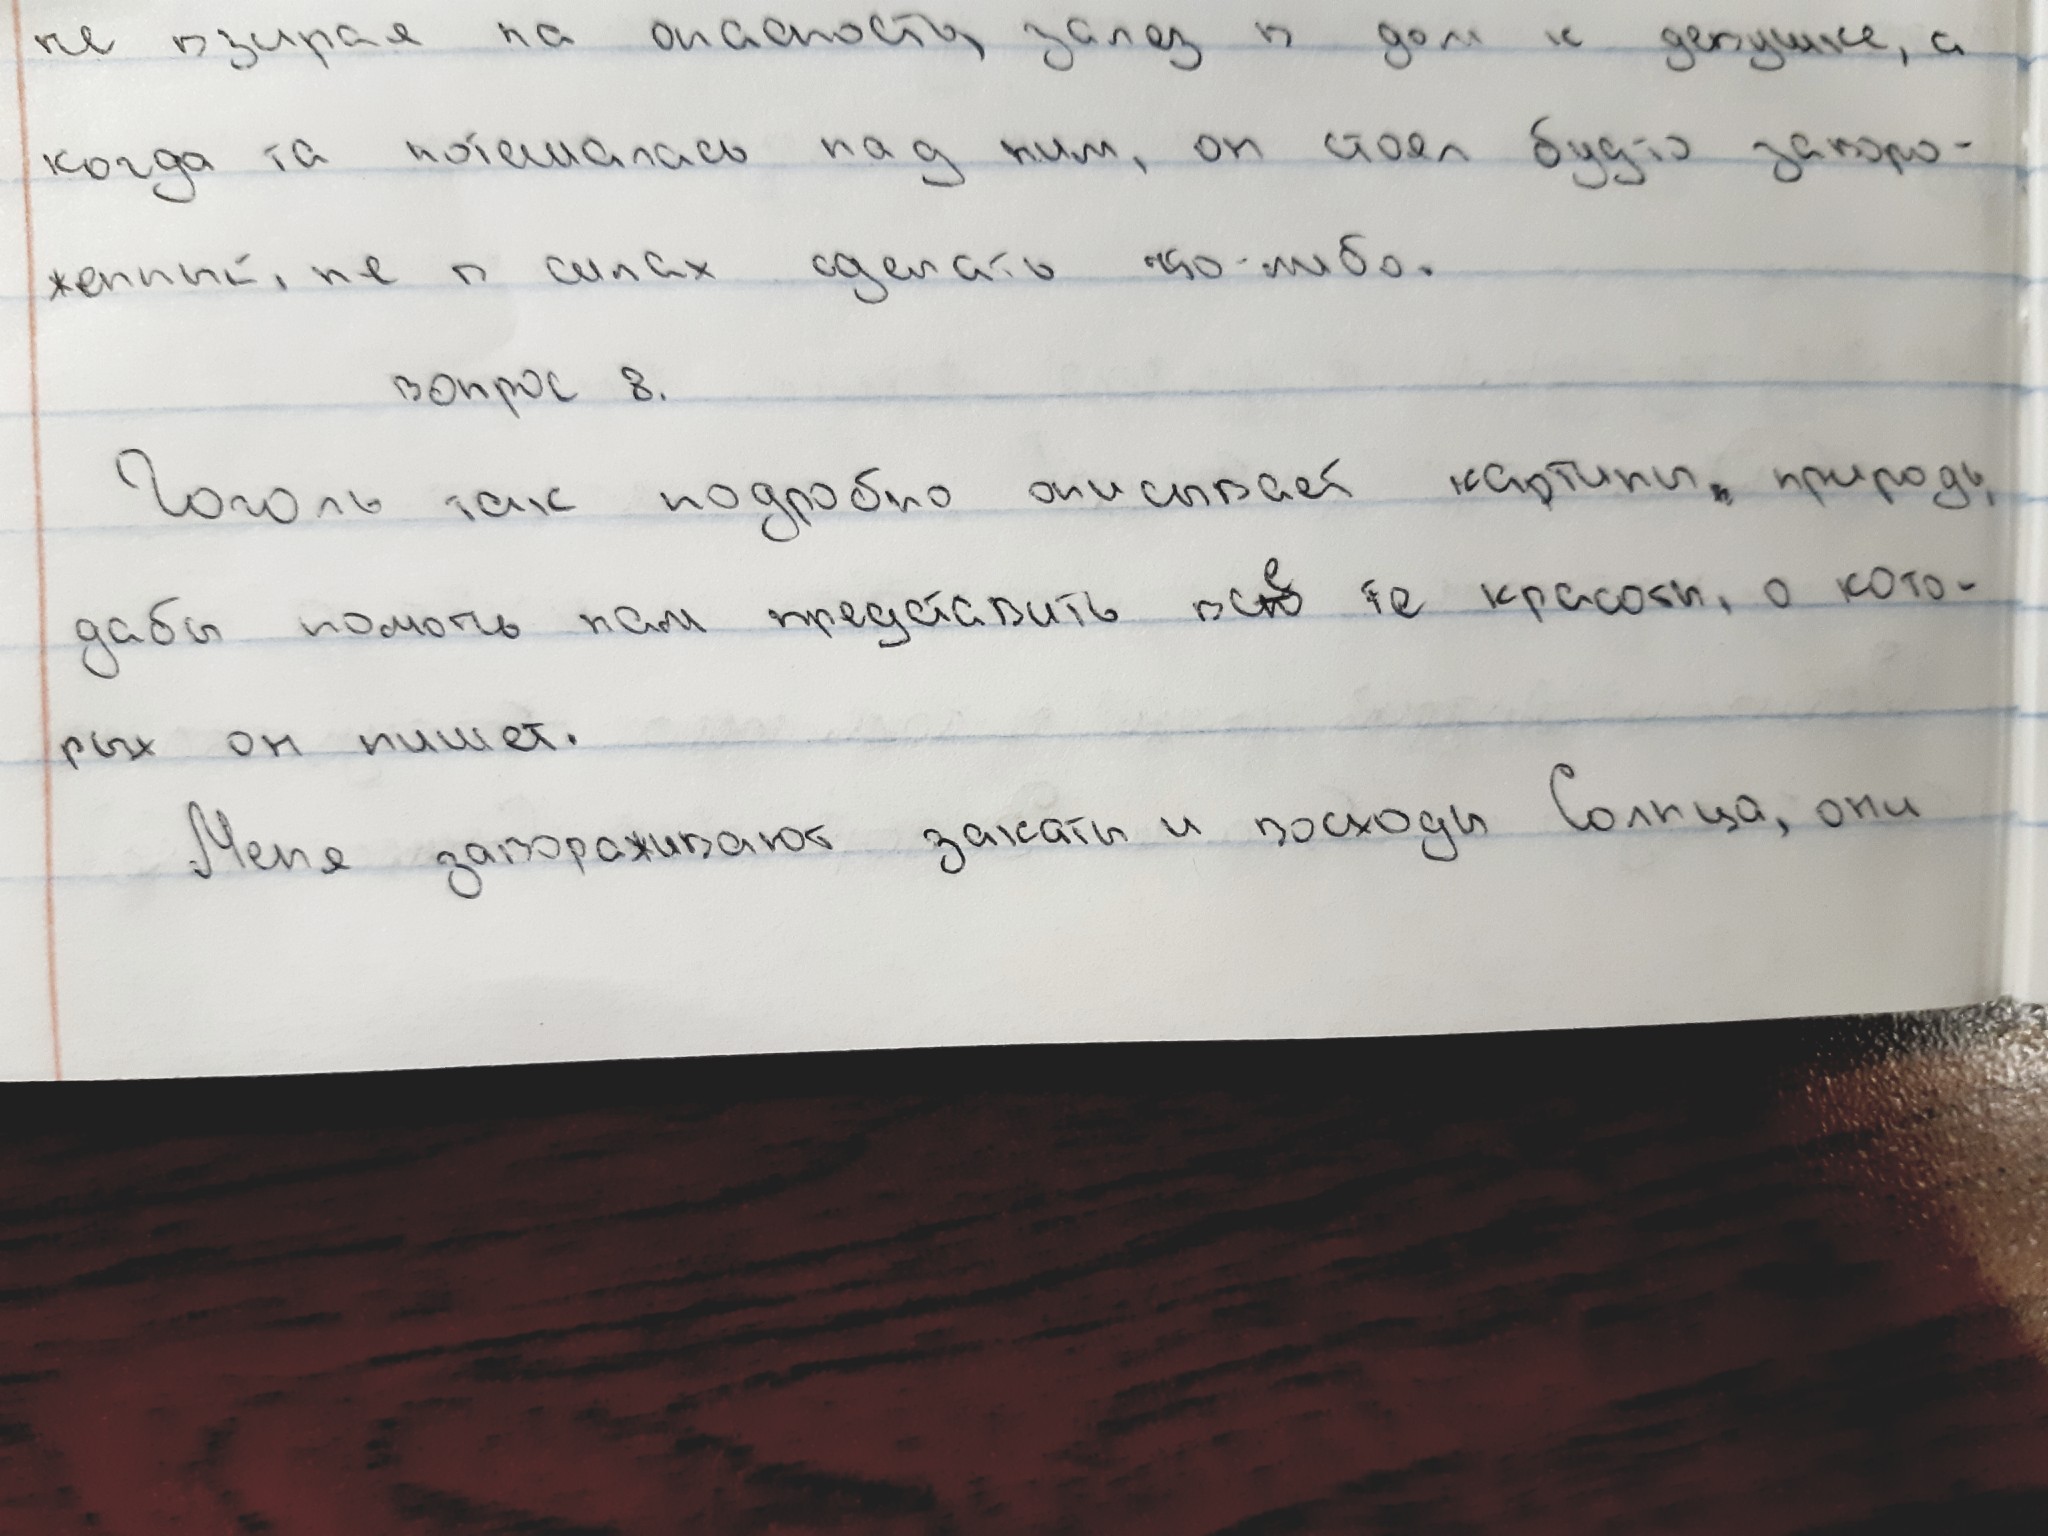 не взирая на опасность, залез в дом к девушке, а
когда та потешалась над ним, он стоял будто заворо-
женный, не в силах сделать что-либо.
вопрос 8.
Гоголь так подробно описывает картины природы,
дабы помочь нам представить все те красоты, о кото-
рых он пишет.
Меня завораживают закаты и восходы Солнца, они